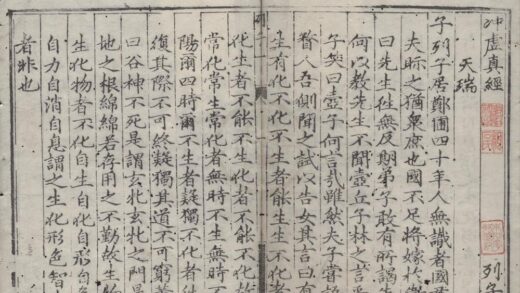 冲虛真經
列子
天瑞
子列子居鄭圃四十年人無識者國君
夫眎之猶衆庶也國不足將嫁於衛
曰先生徃無反期弟子敢有所謁
何以教先生不聞壺丘子林之言乎
子笑曰壺子何言哉雖然夫子嘗語
瞀人吾側聞之試以告女其言曰有
生有化不化不生者能生生不化者
列子一
化生者不能不生化者不能不化
常化常生常化者無時不生無時不
陽爾四時爾不生者疑獨不化者
復其際不可終疑獨其道不可窮
曰谷神不死是謂玄牝玄牝之門是
地之根綿綿若存用之不勤故生物
生化物者不化自生自化自形自
自力自消自息謂之生化形色智力
者非也